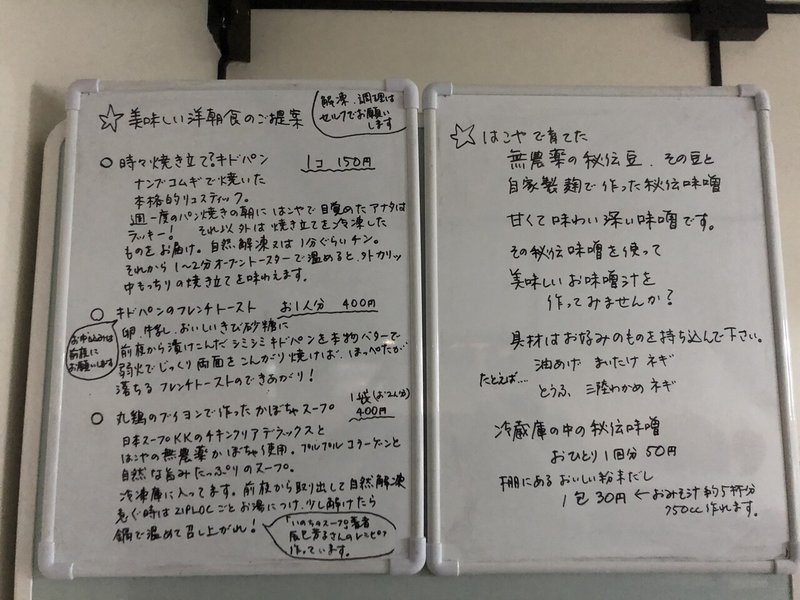 ☆ 美味しい洋朝食のご提案
解凍、調理は
セルフでお願い
します
○ 時々焼き立て?キドパン 1コ 150円
ナンブコムギで焼いた
本格的リュスティック。
週一度のパン焼きの朝にはこやで目覚めたアナタは
ラッキー! それ以外は焼き立てを冷凍した
ものをお届け。自然解凍又は1分ぐらいチン。
それから1〜2分オーブントースターで温めると、外カリッ
中もっちりの焼き立てを味わえます。
○ キドパンのフレンチトースト お1人分 400円
お申し込みは
前夜に
お願いします
卵、牛乳、おいしいきび砂糖に
前夜から漬けこんだシミシミキドパンを本物バターで
弱火でじっくり両面をこんがり焼けば、ほっぺたが
落ちるフレンチトーストのできあがり!
○ 丸鶏のブイヨンで作ったかぼちゃスープ 1袋(お2人分)
400円
日本スープKKのチキンクリアデラックスと
はこやの無農薬かぼちゃ使用。プルプルコラーゲンと
自然な旨みたっぷりのスープ。
冷凍庫に入ってます。前夜から取り出して自然解凍
急ぐ時はZIPLOCごとお湯につけ、少し解けたら
鍋で温めて召し上がれ!
「いのちのスープ」著者
辰巳芳子さんのレシピで
作っています。
☆ はこやで育てた
無農薬の秘伝豆、その豆と
自家製麹で作った秘伝味噌
甘くて味わい深い味噌です。
その秘伝味噌を使って
美味しいお味噌汁を
作ってみませんか?
具材はお好みのものを持ち込んで下さい。
たとえば… 油あげ まいたけ ネギ
とうふ、三陸わかめ ネギ
冷蔵庫の中の秘伝味噌
おひとり1回分 50円
棚にあるおいしい粉末だし
1包 30円 ←おみそ汁約5杯分
750cc作れます。